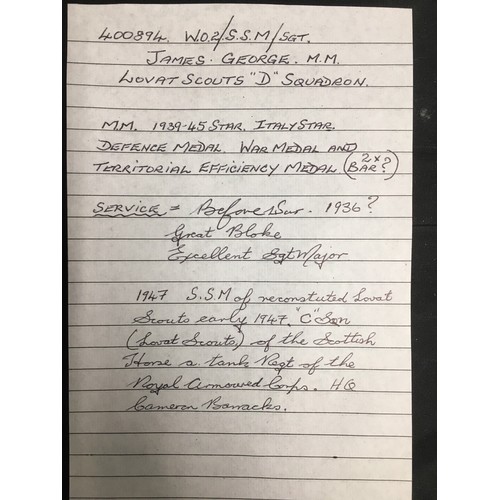 400894. W.O.2/S.S.M/SGT.
JAMES. GEORGE. M.M.
LOVAT SCOUTS "D" SQUADRON.
M.M. 1939-45 STAR. ITALY STAR.
DEFENCE MEDAL. WAR MEDAL AND
TERRITORIAL EFFICIENCY MEDAL (2x BAR?)
SERVICE = Before War. 1936?
Great Bloke
Excellent Sgt Major
1947 S.S.M of reconstuted Lovat
Scouts early 1947. "C" Sqn
(Lovat Scouts) of the Scottish
Horse a tank Regt of the
Royal Armoured Corps. HQ
Cameron Barracks.